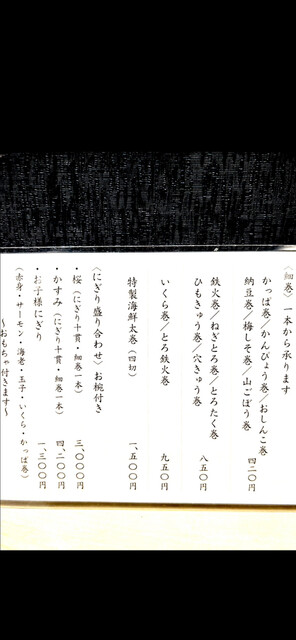 〈細巻〉一本から承ります
かっぱ巻／かんぴょう巻／おしんこ巻
納豆巻／梅しそ巻／山ごぼう巻
四二〇円
鉄火巻／ねぎとろ巻／とろたく巻
ひもきゅう巻／穴きゅう巻
八五〇円
いくら巻／とろ鉄火巻
九五〇円
特製海鮮太巻（四切）
一、五〇〇円
〈にぎり盛り合わせ〉お椀付き
・桜（にぎり十貫・細巻一本）
三、〇〇〇円
・かすみ（にぎり十貫・細巻一本）
四、二〇〇円
・お子様にぎり
一、三〇〇円
（赤身・サーモン・海老・玉子・いくら・かっぱ巻）
〜おもちゃ付きます〜